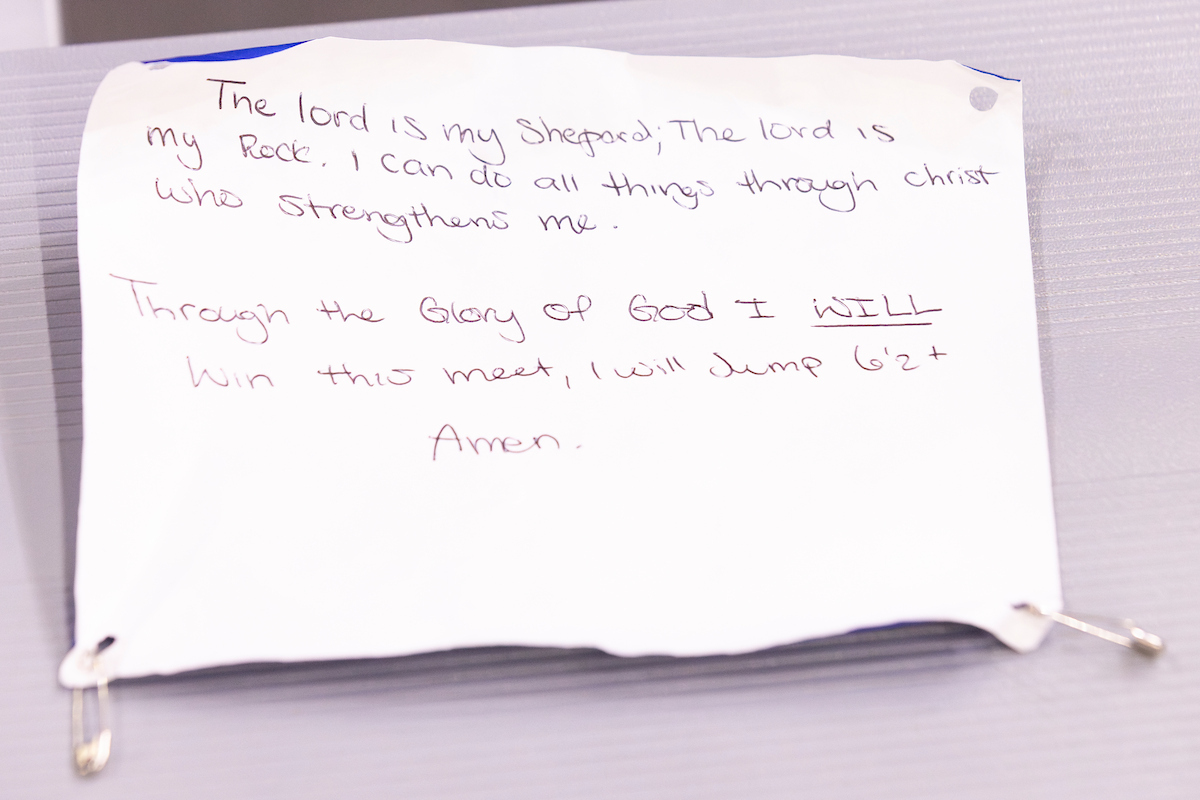 The lord is my Shepard; The lord is
my Rock. I can do all things through christ
who strengthens me.
Through the Glory of God I WILL
Win this meet, I will Jump 6'2+
Amen.